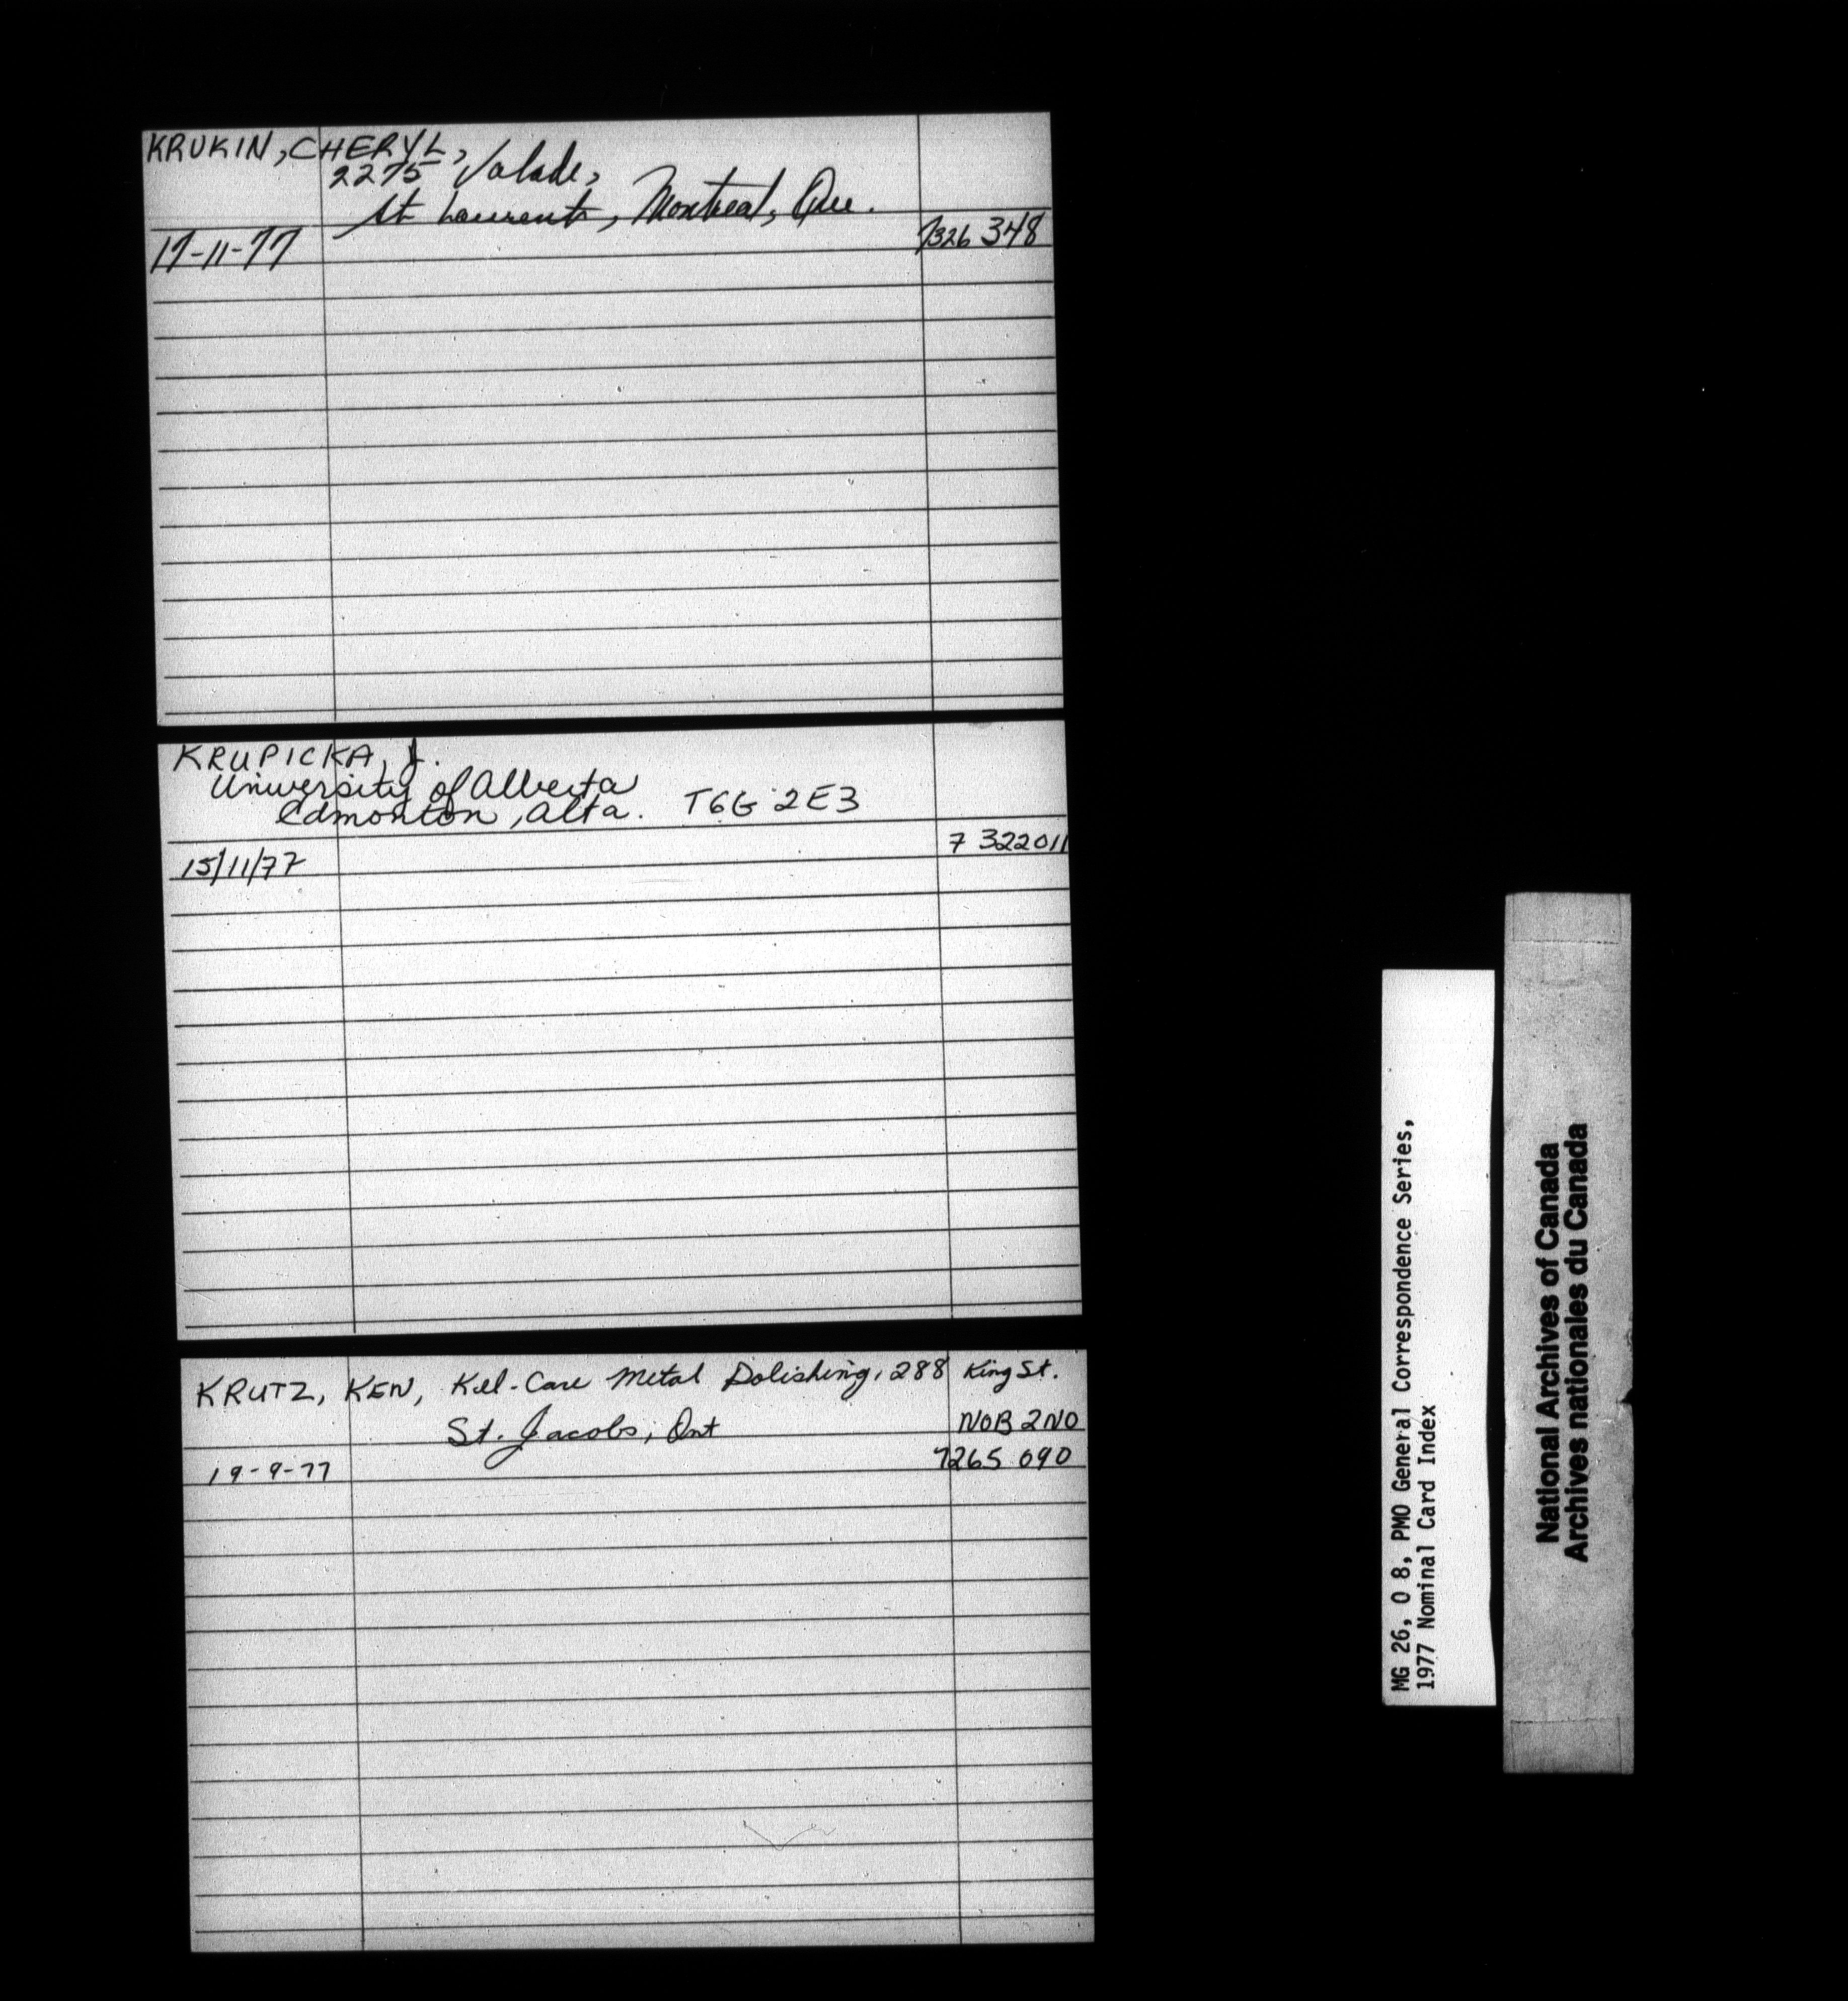 KRUKIN, CHERYL,
2275 Valade,
St Laurent, Montreal, Que.
17-11-77 7326 348
KRUPICKA, J.
University of Alberta
Edmonton, Alta. T6G 2E3
15/11/77 7 322011
KRUTZ, KEN, Kel-Care Metal Polishing, 288 King St.
St. Jacobs, Ont N0B 2N0
19-9-77 7265 090
MG 26, O 8, PMO General Correspondence Series,
1977 Nominal Card Index
National Archives of Canada
Archives nationales du Canada